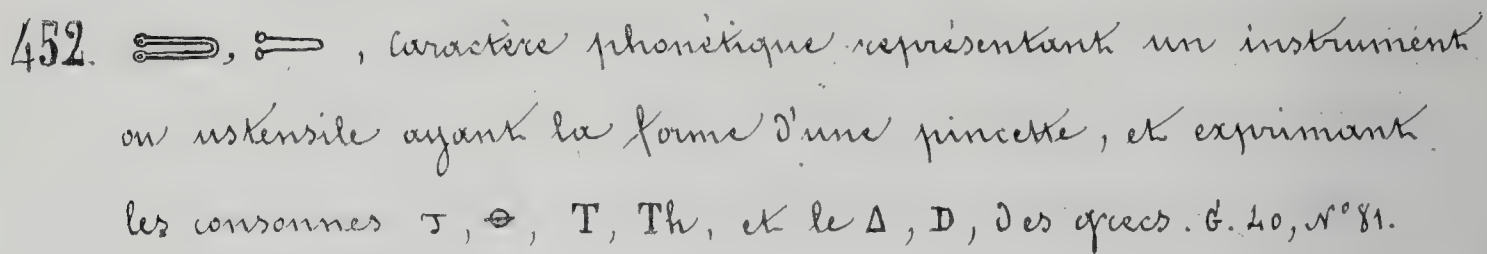 452. 𓍿, 𓍿, caractère phonétique représentant un instrument
ou ustensile ayant la forme d'une pincette, et exprimant
les consonnes ⲧ, ⲑ, T, Th, et le Δ, D, des grecs. G. 40, N° 81.